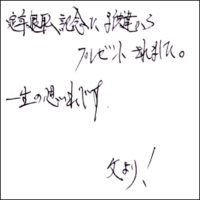 定年退职記念に子供達から
プレゼントされました。
一生の思い出です
父より!